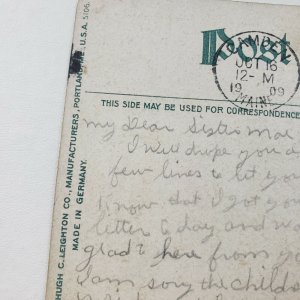 Post
CAMDEN
OCT 16
12-M
19 09
MAINE
THIS SIDE MAY BE USED FOR CORRESPONDENCE
HUGH C. LEIGHTON CO., MANUFACTURERS, PORTLAND, ME., U.S.A. 5106.
MADE IN GERMANY.
My Dear Sister Mae
I will drope you a
few lines to let you
know that I got your
letter to day and was
glad to here from you
I am sory the children